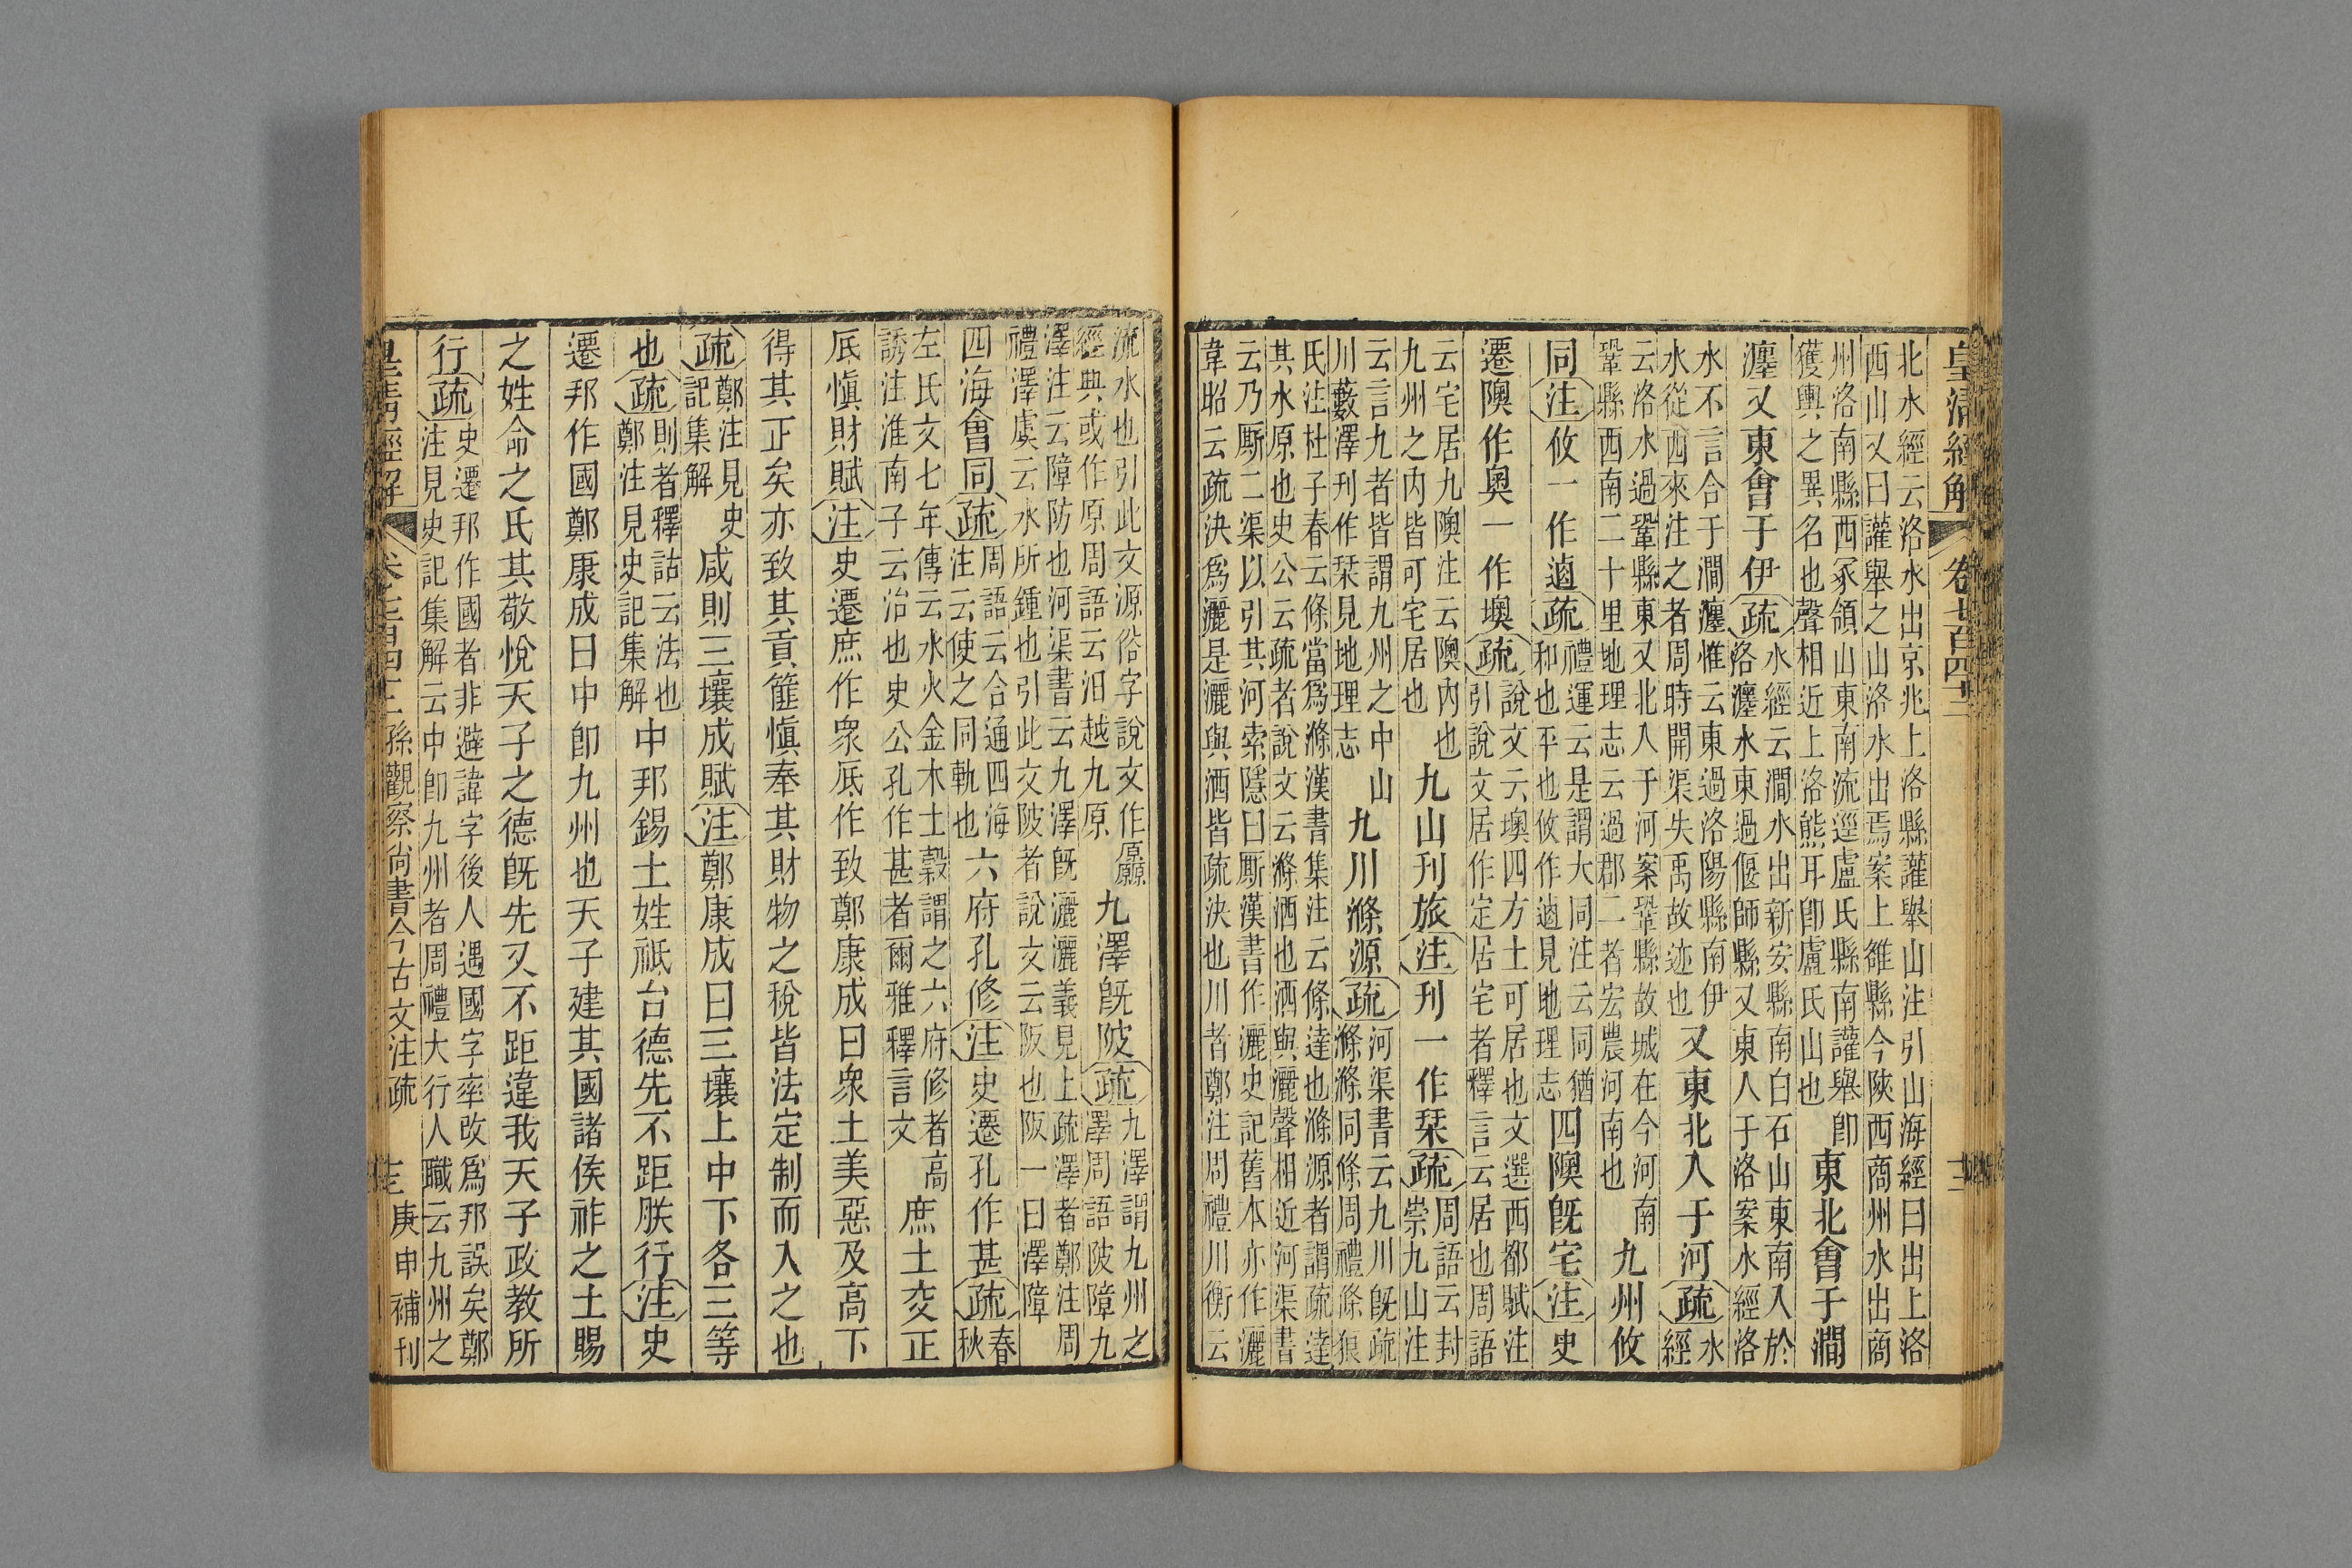 皇清經解 卷七百四十三
北水經云洛水出京兆上洛縣讙舉山注引山海經曰出上洛
西山又曰讙舉之山洛水出焉案上雒縣今陝西商州水出商
州洛南縣西冢領山東南流逕盧氏縣南讙舉即
獲輿之異名也聲相近上洛熊耳即盧氏山也
東北會于澗
瀍又東會于伊疏
水經云澗水出新安縣南白石山東南入於
洛瀍水東過偃師縣又東入于洛案水經洛
水不言合于澗瀍惟云東過洛陽縣南伊
水從西來注之者周時開渠失禹故迹也
又東北入于河疏
水
經
云洛水過鞏縣東又北入于河案鞏縣故城在今河南
鞏縣西南二十里地理志云過郡二者宏農河南也
九州攸
同注攸一作逌疏
禮運云是謂大同注云同猶
和也平也攸作逌見地理志
四隩既宅注史
遷隩作奧一作墺疏
說文云墺四方土可居也文選西都賦注
引說文居作定居宅者釋言云居也周語
云宅居九隩注云隩內也
九州之內皆可宅居也
九山刊旅注刊一作栞疏
周語云封
崇九山注
云言九者皆謂九州之中山
川藪澤刊作栞見地理志
九川滌源疏
河渠書云九川既疏
滌滌同條周禮條狼
氏注杜子春云條當爲滌漢書集注云條達也滌源者謂疏達
其水原也史公云疏者說文云滌洒也洒與灑聲相近河渠書
云乃厮二渠以引其河索隱曰厮漢書作灑史記舊本亦作灑
韋昭云疏決爲灑是灑與洒皆疏決也川者鄭注周禮川衡云
流水也引此文源俗字說文作原厵
經典或作原周語云汨越九原
九澤既陂疏
九澤謂九州之
澤周語陂障九
澤注云障防也河渠書云九澤既灑灑義見上疏澤者鄭注周
禮澤虞云水所鍾也引此文陂者說文云阪也阪一曰澤障
四海會同疏
周語云合通四海
注云使之同軌也
六府孔修注史遷孔作甚疏
春
秋
左氏文七年傳云水火金木土穀謂之六府修者高
誘注淮南子云治也史公孔作甚者爾雅釋言文
庶土交正
厎慎財賦注史遷庶作衆厎作致鄭康成曰衆土美惡及高下
得其正矣亦致其貢篚慎奉其財物之稅皆法定制而入之也
疏
鄭注見史
記集解
咸則三壤成賦注鄭康成曰三壤上中下各三等
也疏
則者釋詁云法也
鄭注見史記集解
中邦錫土姓祗台德先不距朕行注史
遷邦作國鄭康成曰中即九州也天子建其國諸侯祚之土賜
之姓命之氏其敬悅天子之德既先又不距違我天子政教所
行疏
史遷邦作國者非避諱字後人遇國字率改爲邦誤矣鄭
注見史記集解云中即九州者周禮大行人職云九州之
皇清經解 卷七百四十三 孫觀察尚書今古文注疏 庚申補刊